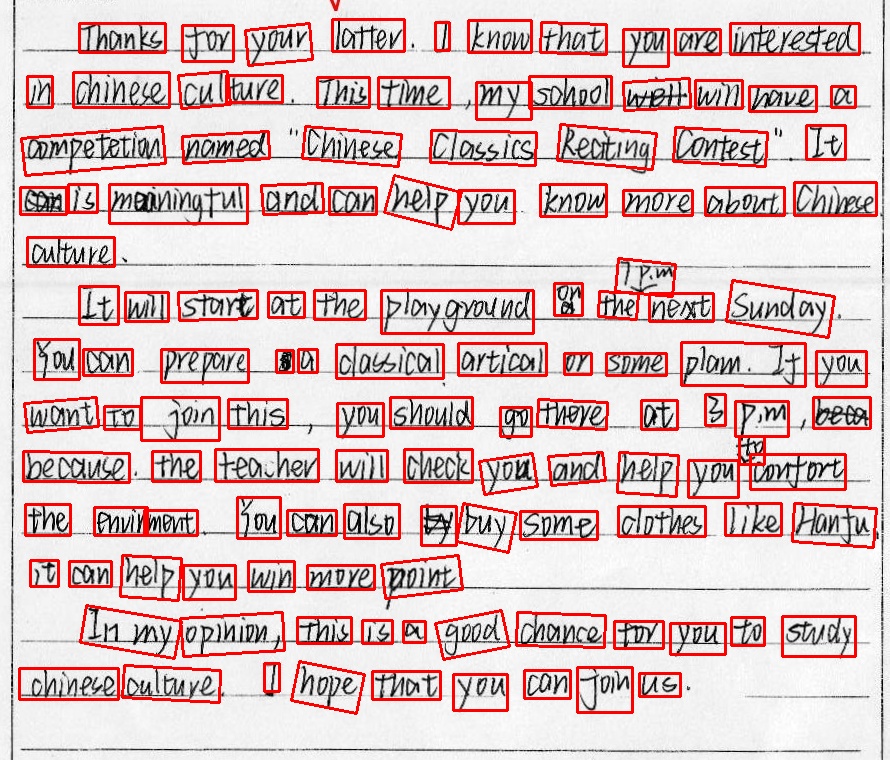 Thanks for your latter. I know that you are interested
in chinese culture. This time, my school will have a
competetian named "Chinese Classics Reciting Contest". It
is meaningful and can help you know more about Chinese
culture.
7 p.m
It will start at the playground on the next Sunday.
You can prepare a classical artical or some plam. If you
want to join this, you should go there at 3 p.m,
because. the teacher will check you and help you to confort
the envirnment. You can also buy some clothes like Hanfu.
it can help you win more point
In my opinion, this is a good chance for you to study
chinese culture. I hope that you can join us.